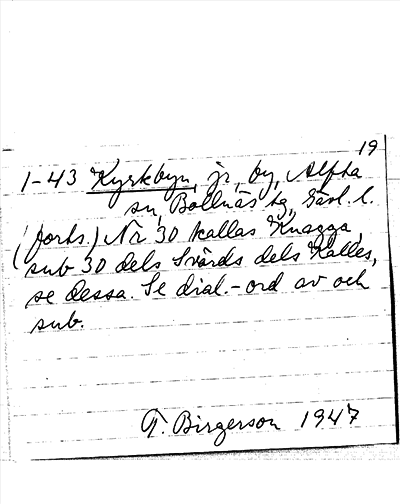 19
1-43 Kyrkbyn, jr, by, Alfta
sn, Bollnäs tg, Gävl. l.
(forts.) Nr 30 kallas Knagga,
sub 30 dels Svärds dels Kalles,
se dessa. Se dial.-ord av och
sub.
T. Birgerson 1947